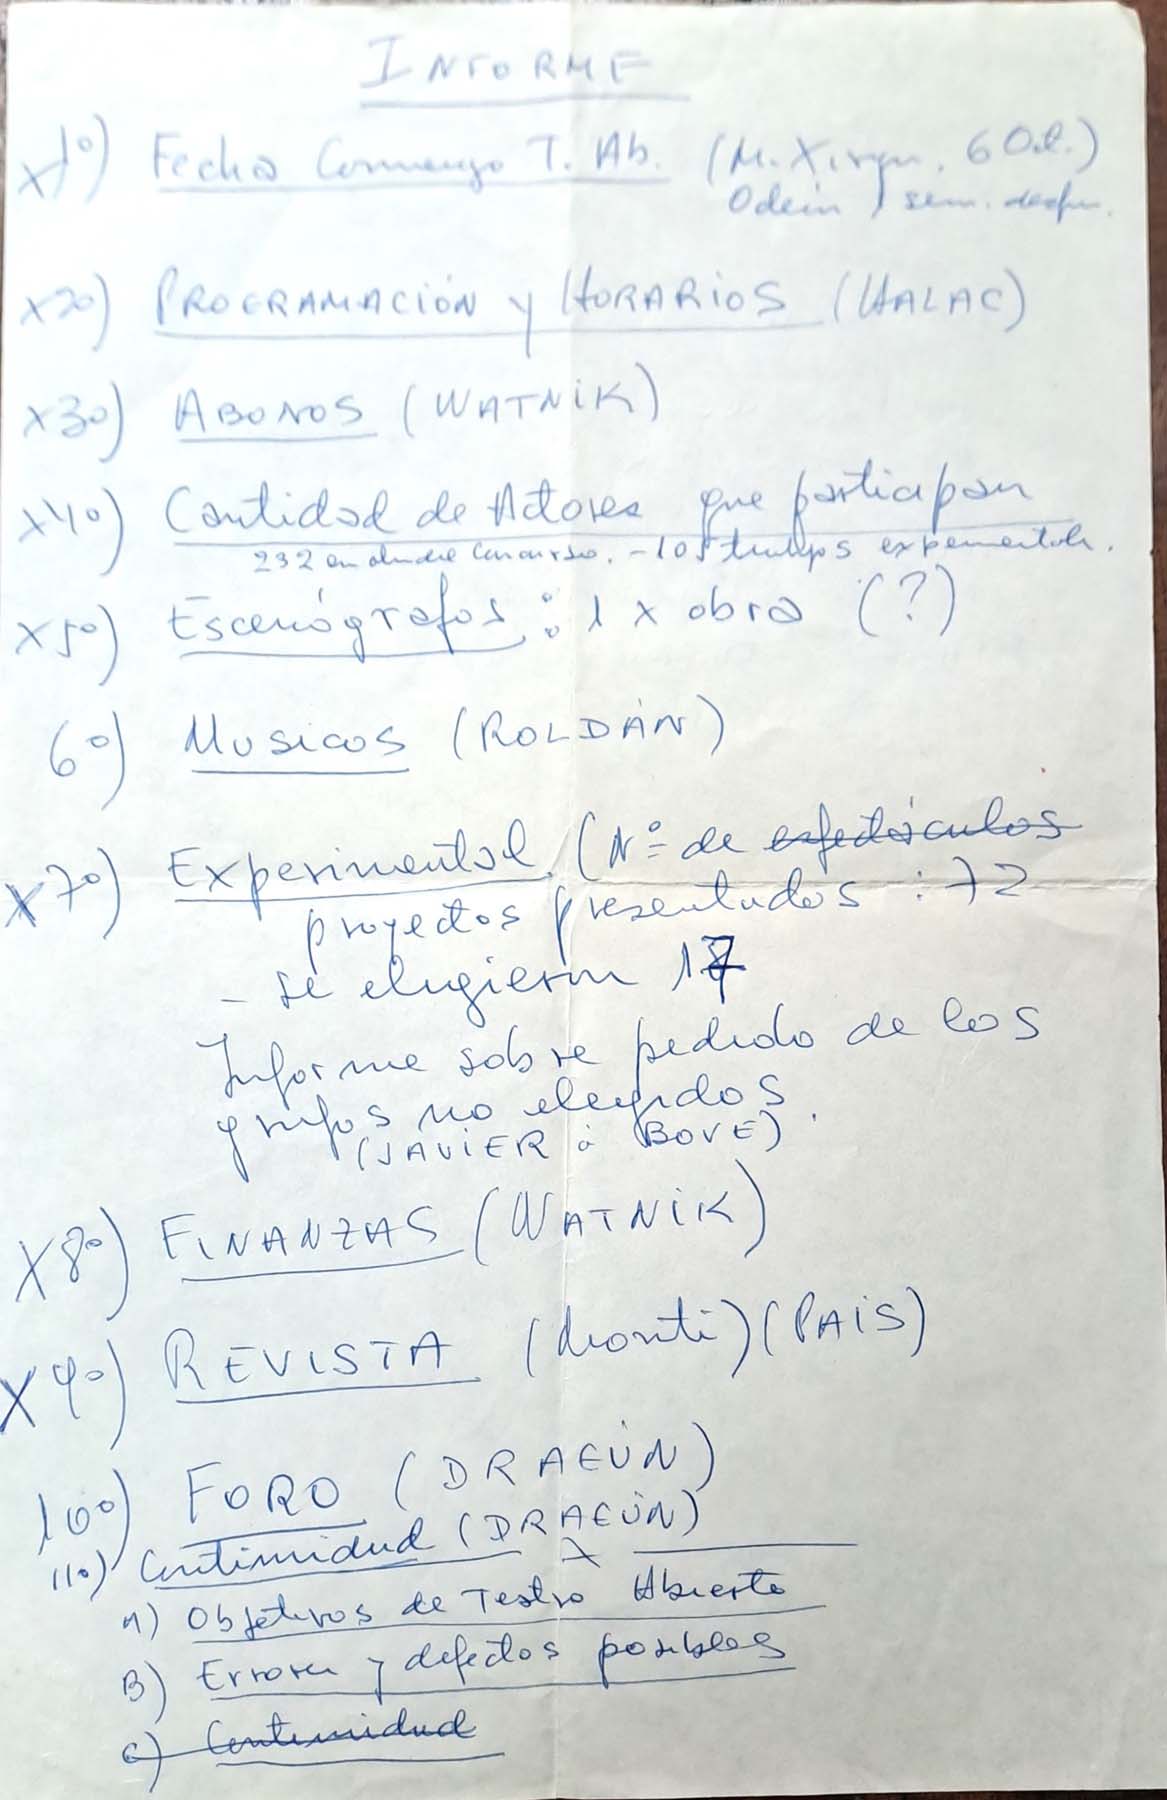 INFORME
x1º) Fecha Comienzo T. Ab. (M. Xirgu. 6 Oct.)
Odeón 1 sem. despu.
x2º) PROGRAMACIÓN y HORARIOS (HALAC)
x3º) ABONOS (WATNIK)
x4º) Cantidad de Actores que participan
232 en Concurso. - 105 experimental.
x5º) Escenógrafos: 1 x obra (?)
6º) MUSICOS (ROLDÁN)
x7º) Experimental (Nº de espectáculos
proyectos presentados : 72
- se eligieron 17
Informe sobre pedido de los
grupos no elegidos
(JAVIER ó BOVE).
x8º) FINANZAS (WATNIK)
x9º) REVISTA (Monti) (PAIS)
10º) FORO (DRAGÚN)
11º) Continuidad (DRAGÚN)
A) Objetivos de Teatro Abierto
B) Errores y defectos posibles
c) Continuidad